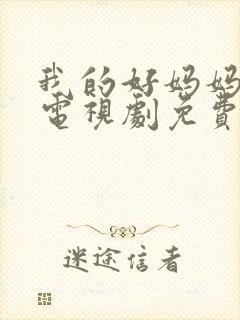 我的好妈妈
電視劇免費
迷途信者